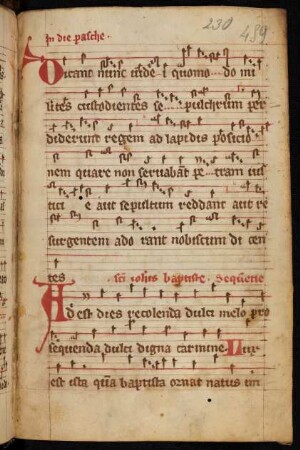 In die pasche.
230
489
Dicant nunc iudei quomodo mi
lites custodientes se pulchrum per
diderunt regem ad lapidis positio
nem quare non seruabant petram ius
tici e aut sepultum reddant aut re
surgentem ado rant nobiscum di cen
tes
sci iohis baptiste. Sequencie
Ad est dies recolenda dulci melo pro
sequenda dulci digna carmine Lux
est ista qua baptista ornat natus um